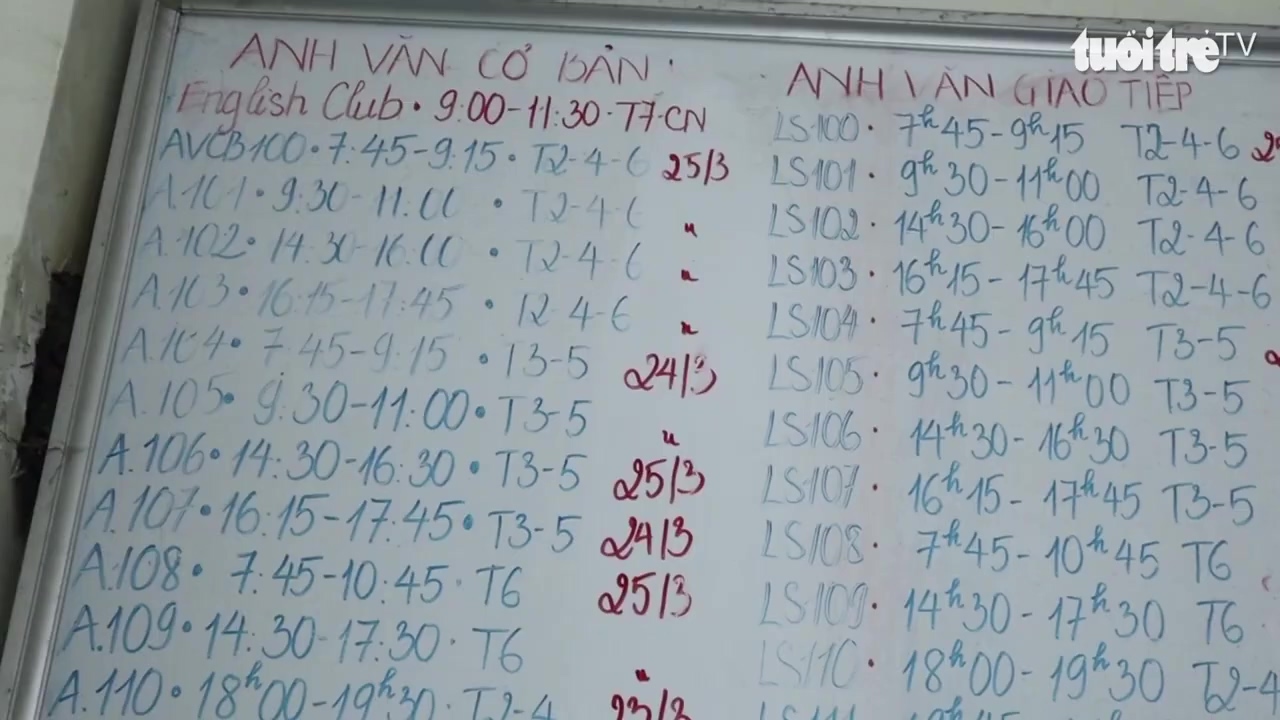 tuổi trẻ TV
ANH VĂN CƠ BẢN
English Club • 9:00-11:30 • T7-CN
AVCB100 • 7:45-9:15 • T2-4-6 25/3
A.101 • 9:30-11:00 • T2-4-6 "
A.102 • 14:30-16:00 • T2-4-6 "
A.103 • 16:15-17:45 • T2 4-6 "
A.104 • 7:45-9:15 • T3-5 24/3
A.105 • 9:30-11:00 • T3-5 "
A.106 • 14:30-16:30 • T3-5 25/3
A.107 • 16:15-17:45 • T3-5 24/3
A.108 • 7:45-10:45 • T6 25/3
A.109 • 14:30-17:30 • T6 "
A.110 • 18h00-19h30 • T2-4 23/3
ANH VĂN GIAO TIẾP
LS100 • 7h45-9h15 T2-4-6
LS101 • 9h30-11h00 T2-4-6
LS102 • 14h30-16h00 T2-4-6
LS103 • 16h15-17h45 T2-4-6
LS104 • 7h45-9h15 T3-5
LS105 • 9h30-11h00 T3-5
LS106 • 14h30-16h30 T3-5
LS107 • 16h15-17h45 T3-5
LS108 • 7h45-10h45 T6
LS109 • 14h30-17h30 T6
LS110 • 18h00-19h30 T2-4